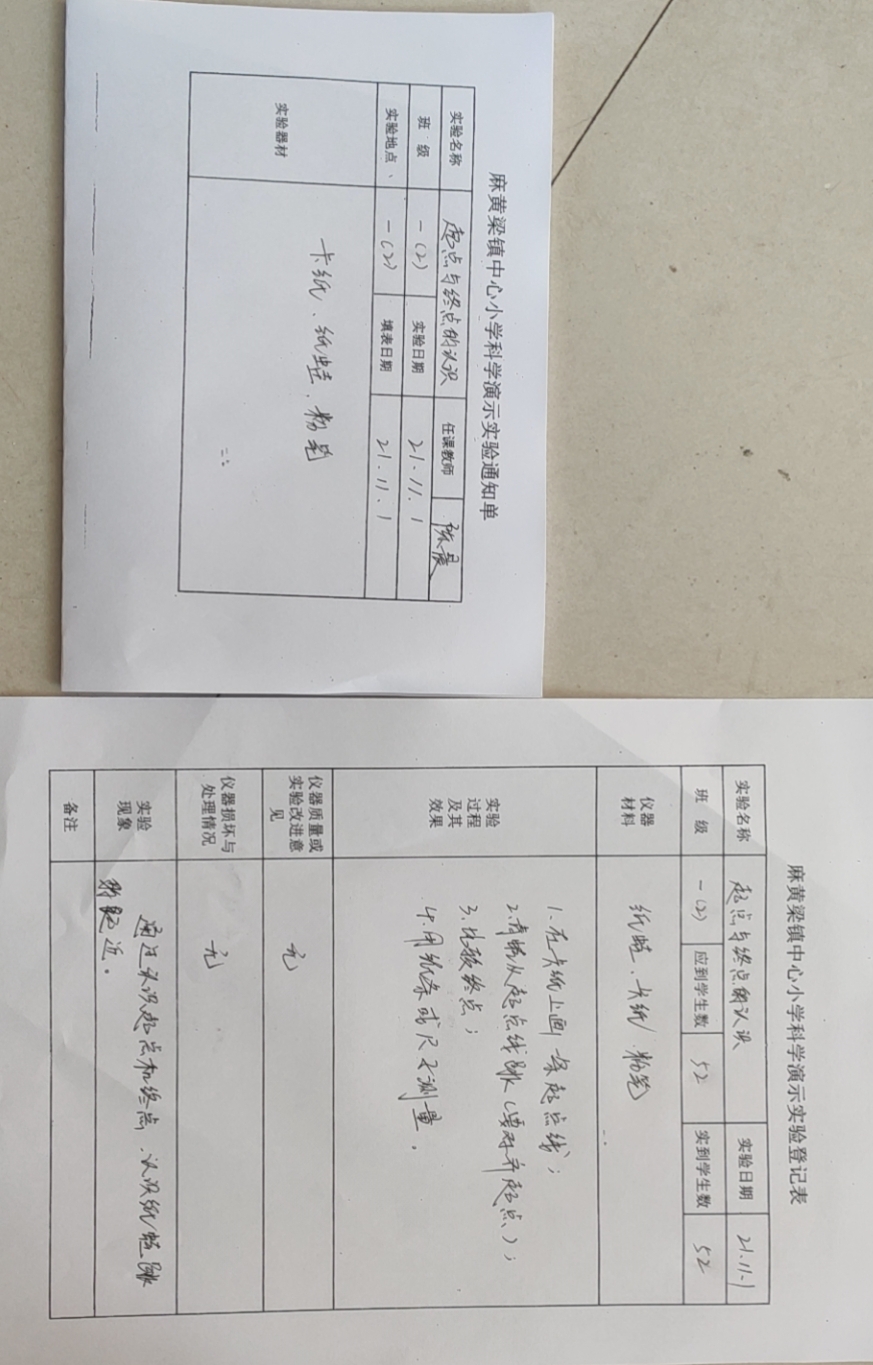 麻黄梁镇中心小学科学演示实验通知单
实验名称 起点与终点的认识 任课教师
班 级 一(2) 实验日期 21.11.1
实验地点、 一(2) 填表日期 21.11.1
实验器材 卡纸、纸蛙、粉笔
麻黄梁镇中心小学科学演示实验登记表
实验名称 起点与终点的认识 实验日期 21.11.1
班 级 一(2) 应到学生数 52 实到学生数 52
仪器
材料 纸蛙、卡纸 粉笔
实验
过程
及其
效果
1.在卡纸上画一条起点线;
2.青蛙从起点线跳(要对齐起点);
3.比较终点;
4.用纸条或尺子测量.
仪器质量或
实验改进意
见 无
仪器损坏与
处理情况 无
实验
现象
通过认识起点和终点、认识纸蛙跳
远近。
备注